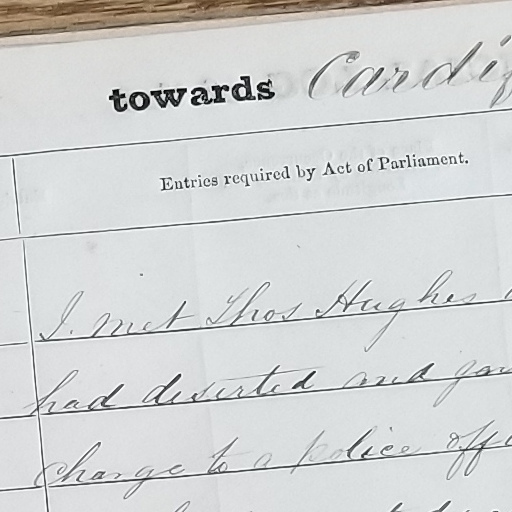 towards Cardif
Entries required by Act of Parliament.
I met Thos Hughes
had deserted and
charge to a police offi